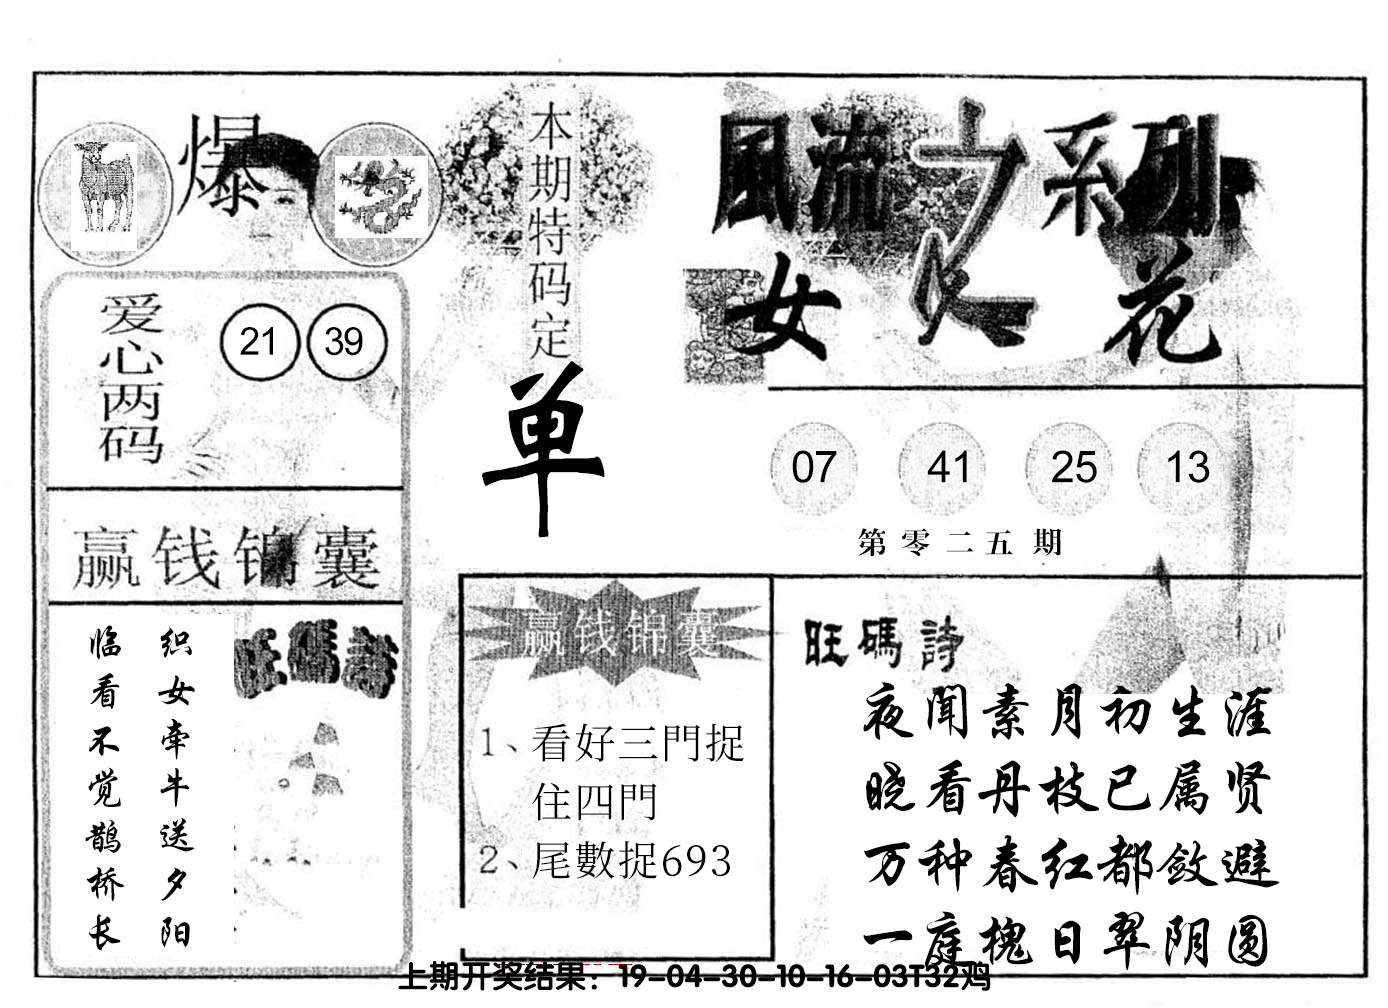 爆
本期特码定
单
風流之系列
女人花
爱心两码
21 39
07 41 25 13
第零二五期
赢钱锦囊
旺碼詩
织女牵牛送夕阳
临看不觉鹊桥长
赢钱锦囊
1、看好三門捉
住四門
2、尾數捉693
旺碼詩
夜闻素月初生涯
晓看丹枝已属贤
万种春红都敛避
一庭槐日翠阴圆
上期开奖结果：19-04-30-10-16-03T32鸡